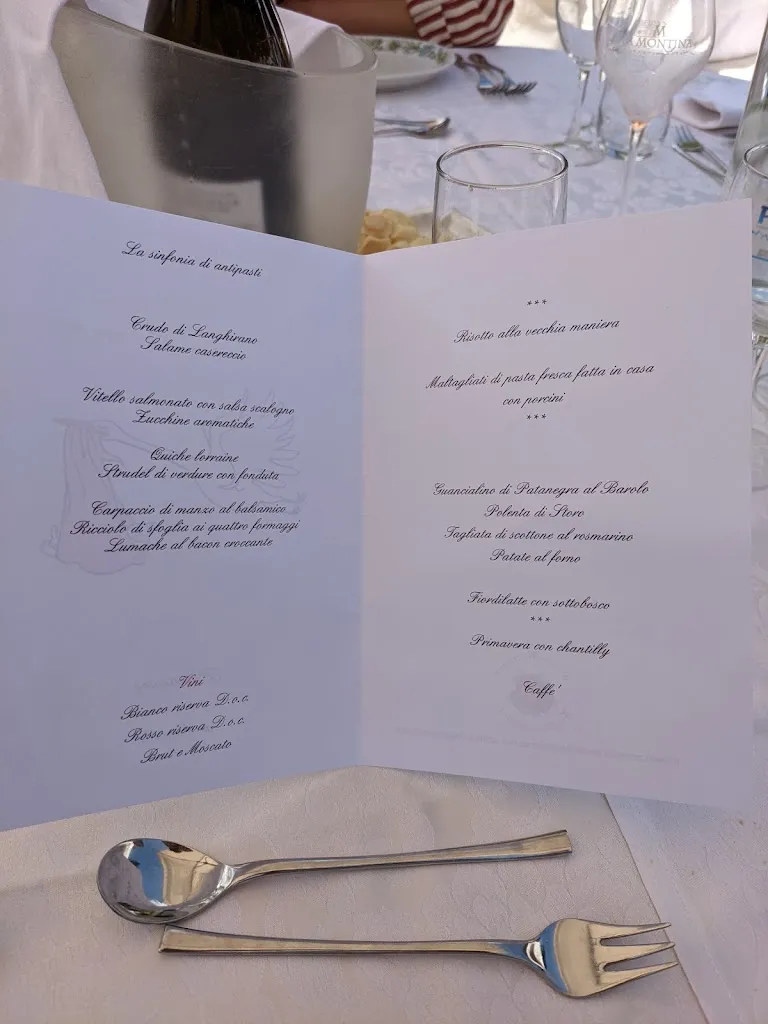 La sinfonia di antipasti
Crudo di Langhirano
Salame casereccio
Vitello salmonato con salsa scalogno
Zucchine aromatiche
Quiche lorraine
Strudel di verdure con fonduta
Carpaccio di manzo al balsamico
Ricciolo di sfoglia ai quattro formaggi
Lumache al bacon croccante
Vini
Bianco riserva D.o.c.
Rosso riserva D.o.c.
Brut e Moscato
***
Risotto alla vecchia maniera
Maltagliati di pasta fresca fatta in casa
con porcini
***
Guancialino di Patanegra al Barolo
Polenta di Storo
Tagliata di scottone al rosmarino
Patate al forno
Fiordilatte con sottobosco
***
Primavera con chantilly
Caffe'
M
MONTINA